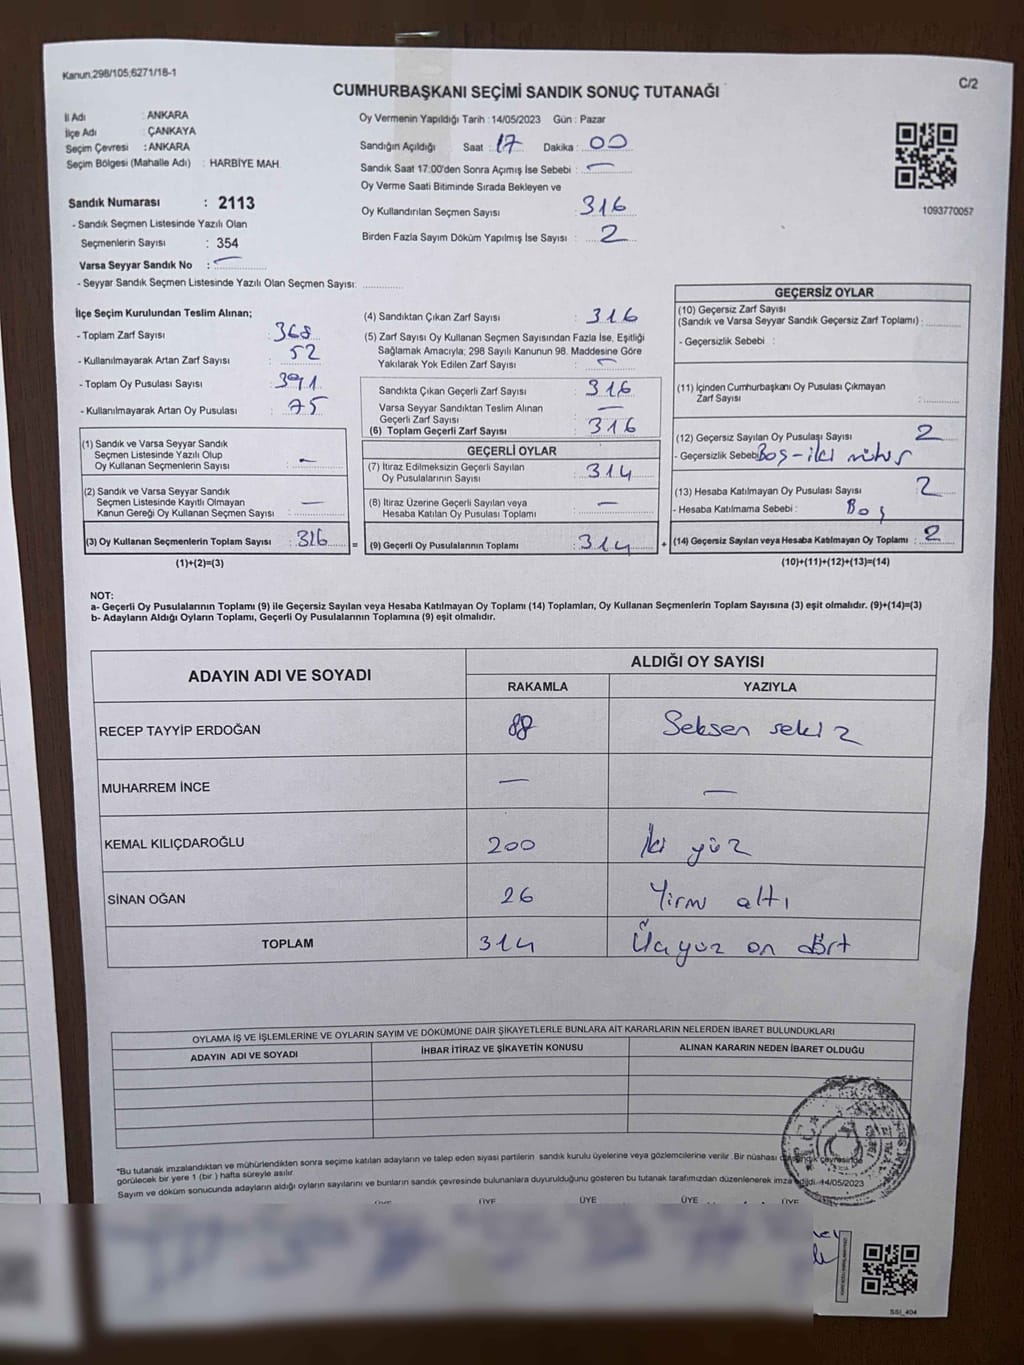 Kanun.298/105,6271/18-1
C/2
CUMHURBAŞKANI SEÇİMİ SANDIK SONUÇ TUTANAĞI
İl Adı : ANKARA
İlçe Adı : ÇANKAYA
Seçim Çevresi : ANKARA
Seçim Bölgesi (Mahalle Adı) : HARBİYE MAH.
Sandık Numarası : 2113
- Sandık Seçmen Listesinde Yazılı Olan
Seçmenlerin Sayısı : 354
Varsa Seyyar Sandık No : —
- Seyyar Sandık Seçmen Listesinde Yazılı Olan Seçmen Sayısı:
Oy Vermenin Yapıldığı Tarih : 14/05/2023 Gün : Pazar
Sandığın Açıldığı Saat : 17 Dakika : 00
Sandık Saat 17:00'den Sonra Açımış İse Sebebi : —
Oy Verme Saati Bitiminde Sırada Bekleyen ve
Oy Kullandırılan Seçmen Sayısı : 316
Birden Fazla Sayım Döküm Yapılmış İse Sayısı : 2
1093770057
İlçe Seçim Kurulundan Teslim Alınan;
- Toplam Zarf Sayısı : 368
- Kullanılmayarak Artan Zarf Sayısı : 52
- Toplam Oy Pusulası Sayısı : 391
- Kullanılmayarak Artan Oy Pusulası : 75
(1) Sandık ve Varsa Seyyar Sandık
Seçmen Listesinde Yazılı Olup
Oy Kullanan Seçmenlerin Sayısı : —
(2) Sandık ve Varsa Seyyar Sandık
Seçmen Listesinde Kayıtlı Olmayan
Kanun Gereği Oy Kullanan Seçmen Sayısı : —
(3) Oy Kullanan Seçmenlerin Toplam Sayısı : 316
(1)+(2)=(3)
=
(4) Sandıktan Çıkan Zarf Sayısı : 316
(5) Zarf Sayısı Oy Kullanan Seçmen Sayısından Fazla İse, Eşitliği
Sağlamak Amacıyla; 298 Sayılı Kanunun 98. Maddesine Göre
Yakılarak Yok Edilen Zarf Sayısı : —
Sandıkta Çıkan Geçerli Zarf Sayısı : 316
Varsa Seyyar Sandıktan Teslim Alınan
Geçerli Zarf Sayısı : —
(6) Toplam Geçerli Zarf Sayısı : 316
GEÇERLİ OYLAR
(7) İtiraz Edilmeksizin Geçerli Sayılan
Oy Pusulalarının Sayısı : 314
(8) İtiraz Üzerine Geçerli Sayılan veya
Hesaba Katılan Oy Pusulası Toplamı : —
(9) Geçerli Oy Pusulalarının Toplamı : 314
+
GEÇERSİZ OYLAR
(10) Geçersiz Zarf Sayısı
(Sandık ve Varsa Seyyar Sandık Geçersiz Zarf Toplamı) :
- Geçersizlik Sebebi :
(11) İçinden Cumhurbaşkanı Oy Pusulası Çıkmayan
Zarf Sayısı :
(12) Geçersiz Sayılan Oy Pusulası Sayısı 2
- Geçersizlik Sebebi Boş-iki mühür
(13) Hesaba Katılmayan Oy Pusulası Sayısı 2
- Hesaba Katılmama Sebebi : Boş
(14) Geçersiz Sayılan veya Hesaba Katılmayan Oy Toplamı : 2
(10)+(11)+(12)+(13)=(14)
NOT:
a- Geçerli Oy Pusulalarının Toplamı (9) ile Geçersiz Sayılan veya Hesaba Katılmayan Oy Toplamı (14) Toplamları, Oy Kullanan Seçmenlerin Toplam Sayısına (3) eşit olmalıdır. (9)+(14)=(3)
b- Adayların Aldığı Oyların Toplamı, Geçerli Oy Pusulalarının Toplamına (9) eşit olmalıdır.
ADAYIN ADI VE SOYADI ALDIĞI OY SAYISI
RAKAMLA YAZIYLA
RECEP TAYYİP ERDOĞAN 88 Seksen sekiz
MUHARREM İNCE — —
KEMAL KILIÇDAROĞLU 200 İki yüz
SİNAN OĞAN 26 Yirmi altı
TOPLAM 314 Üçyüz on dört
OYLAMA İŞ VE İŞLEMLERİNE VE OYLARIN SAYIM VE DÖKÜMÜNE DAİR ŞİKAYETLERLE BUNLARA AİT KARARLARIN NELERDEN İBARET BULUNDUKLARI
ADAYIN ADI VE SOYADI İHBAR İTİRAZ VE ŞİKAYETİN KONUSU ALINAN KARARIN NEDEN İBARET OLDUĞU
*Bu tutanak imzalandıktan ve mühürlendikten sonra seçime katılan adayların ve talep eden siyasi partilerin sandık kurulu üyelerine veya gözlemcilerine verilir. Bir nüshası da sandık çevresinde
görülecek bir yere 1 (bir ) hafta süreyle asılır.
Sayım ve döküm sonucunda adayların aldığı oyların sayılarını ve bunların sandık çevresinde bulunanlara duyurulduğunu gösteren bu tutanak tarafımızdan düzenlenerek imza edildi. 14/05/2023
ÜYE ÜYE ÜYE ÜYE ÜYE
SSI_404